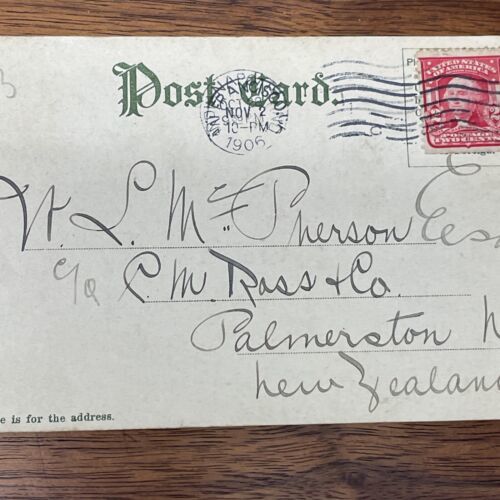 Post Card.
NOV 2
10-PM
1906
UNITED STATES
OF AMERICA
POSTAGE
TWO CENTS
W. L. McPherson Esq
c/o C. M. Ross & Co.
Palmerston N
New Zealand
e is for the address.